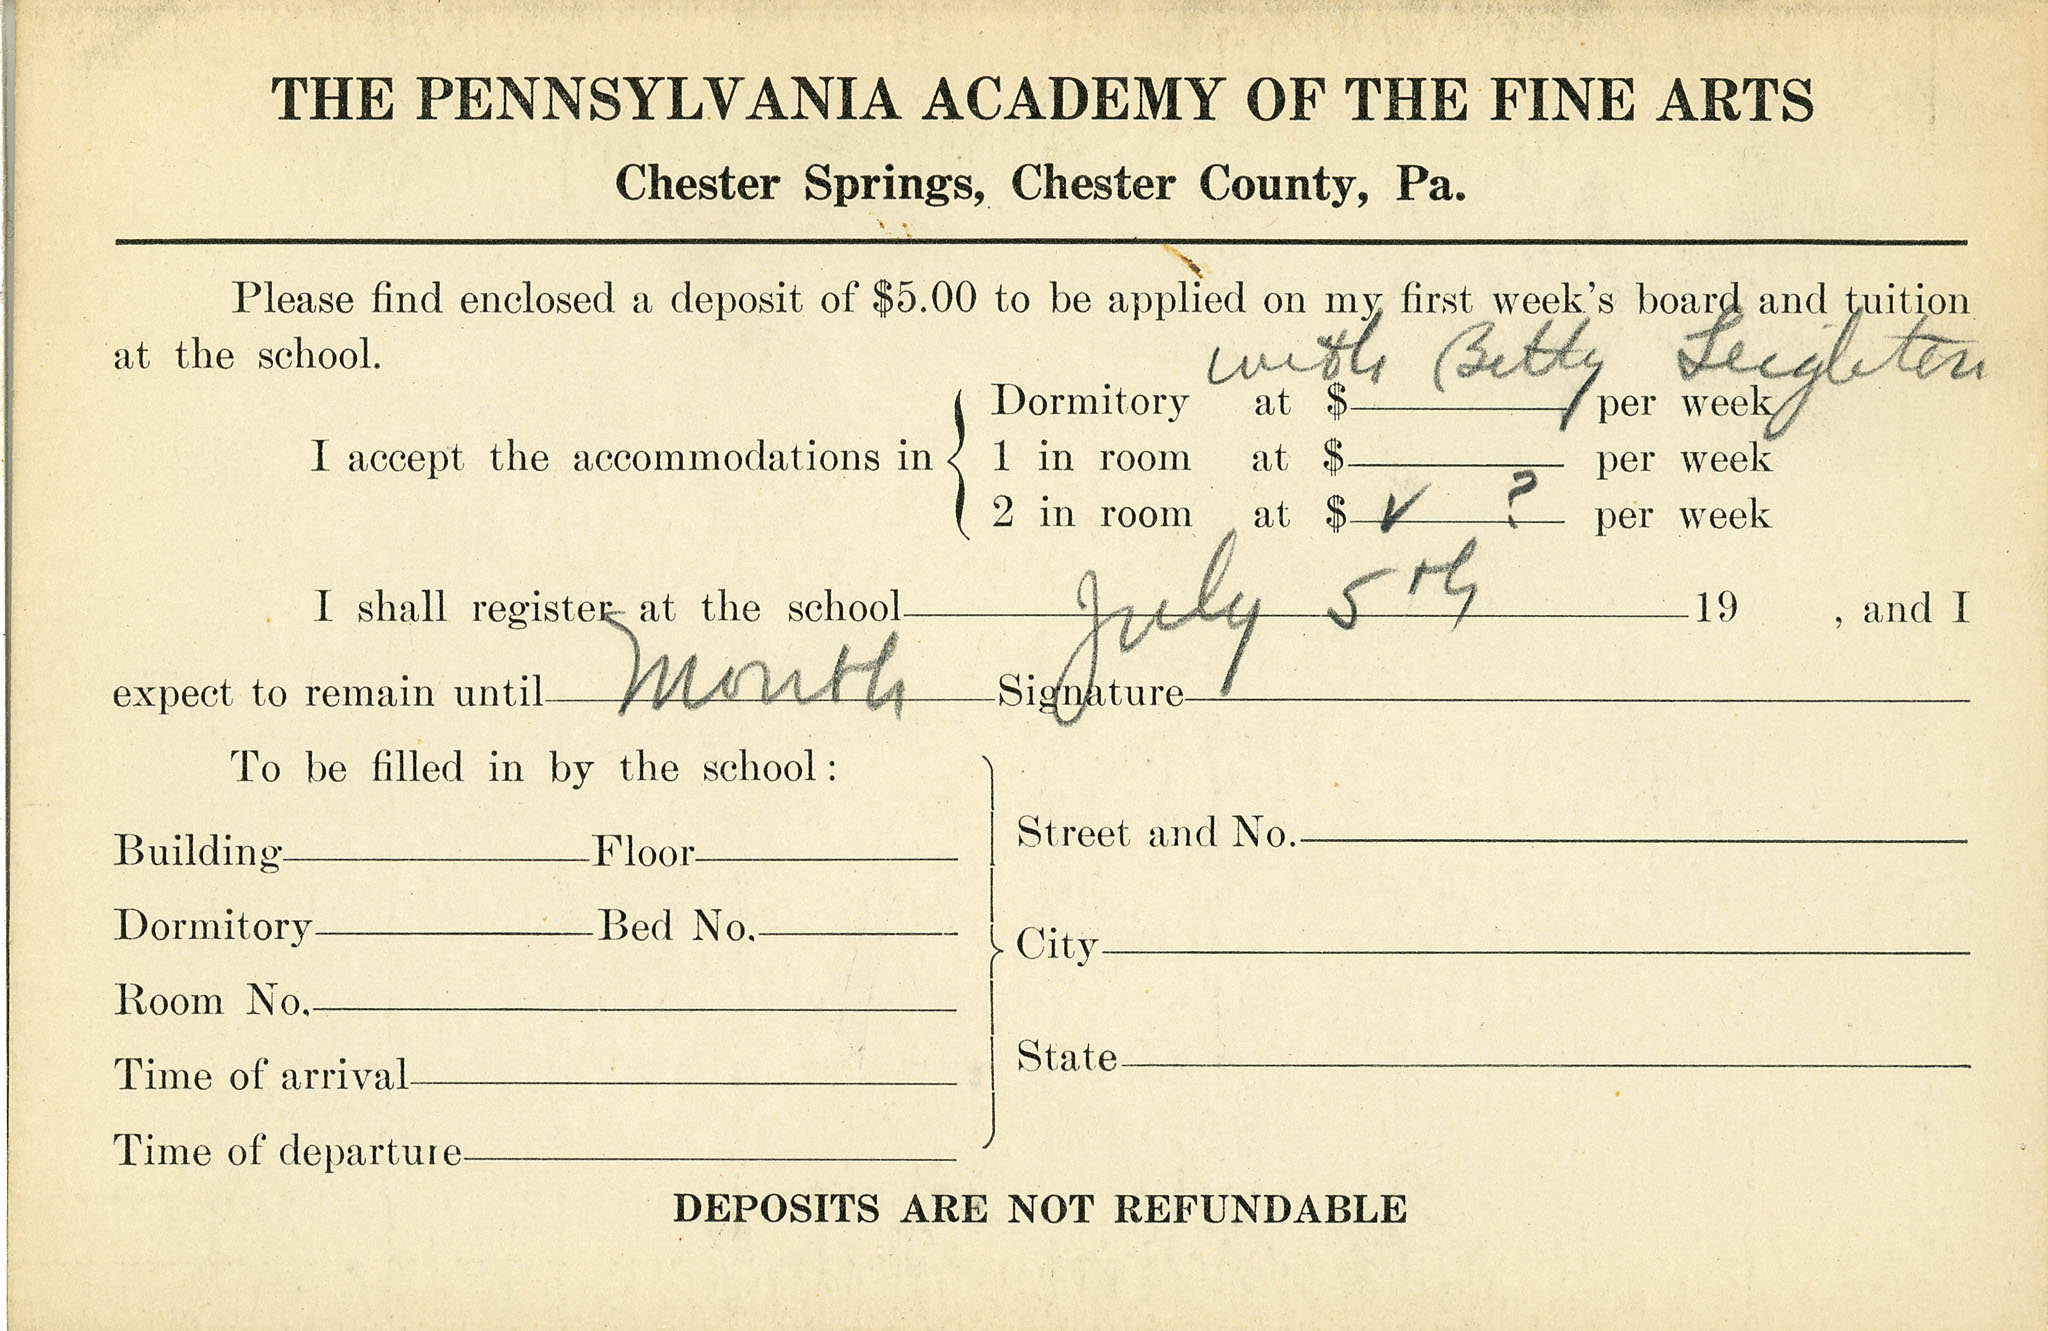 THE PENNSYLVANIA ACADEMY OF THE FINE ARTS
Chester Springs, Chester County, Pa.
Please find enclosed a deposit of $5.00 to be applied on my first week's board and tuition
at the school.
with Betty Leighton
Dormitory at $ per week
I accept the accommodations in
1 in room at $ per week
2 in room at $ ✓ ? per week
I shall register at the school July 5th 19 , and I
expect to remain until Month Signature
To be filled in by the school:
Building Floor
Street and No.
Dormitory Bed No.
City
Room No.
State
Time of arrival
Time of departure
DEPOSITS ARE NOT REFUNDABLE